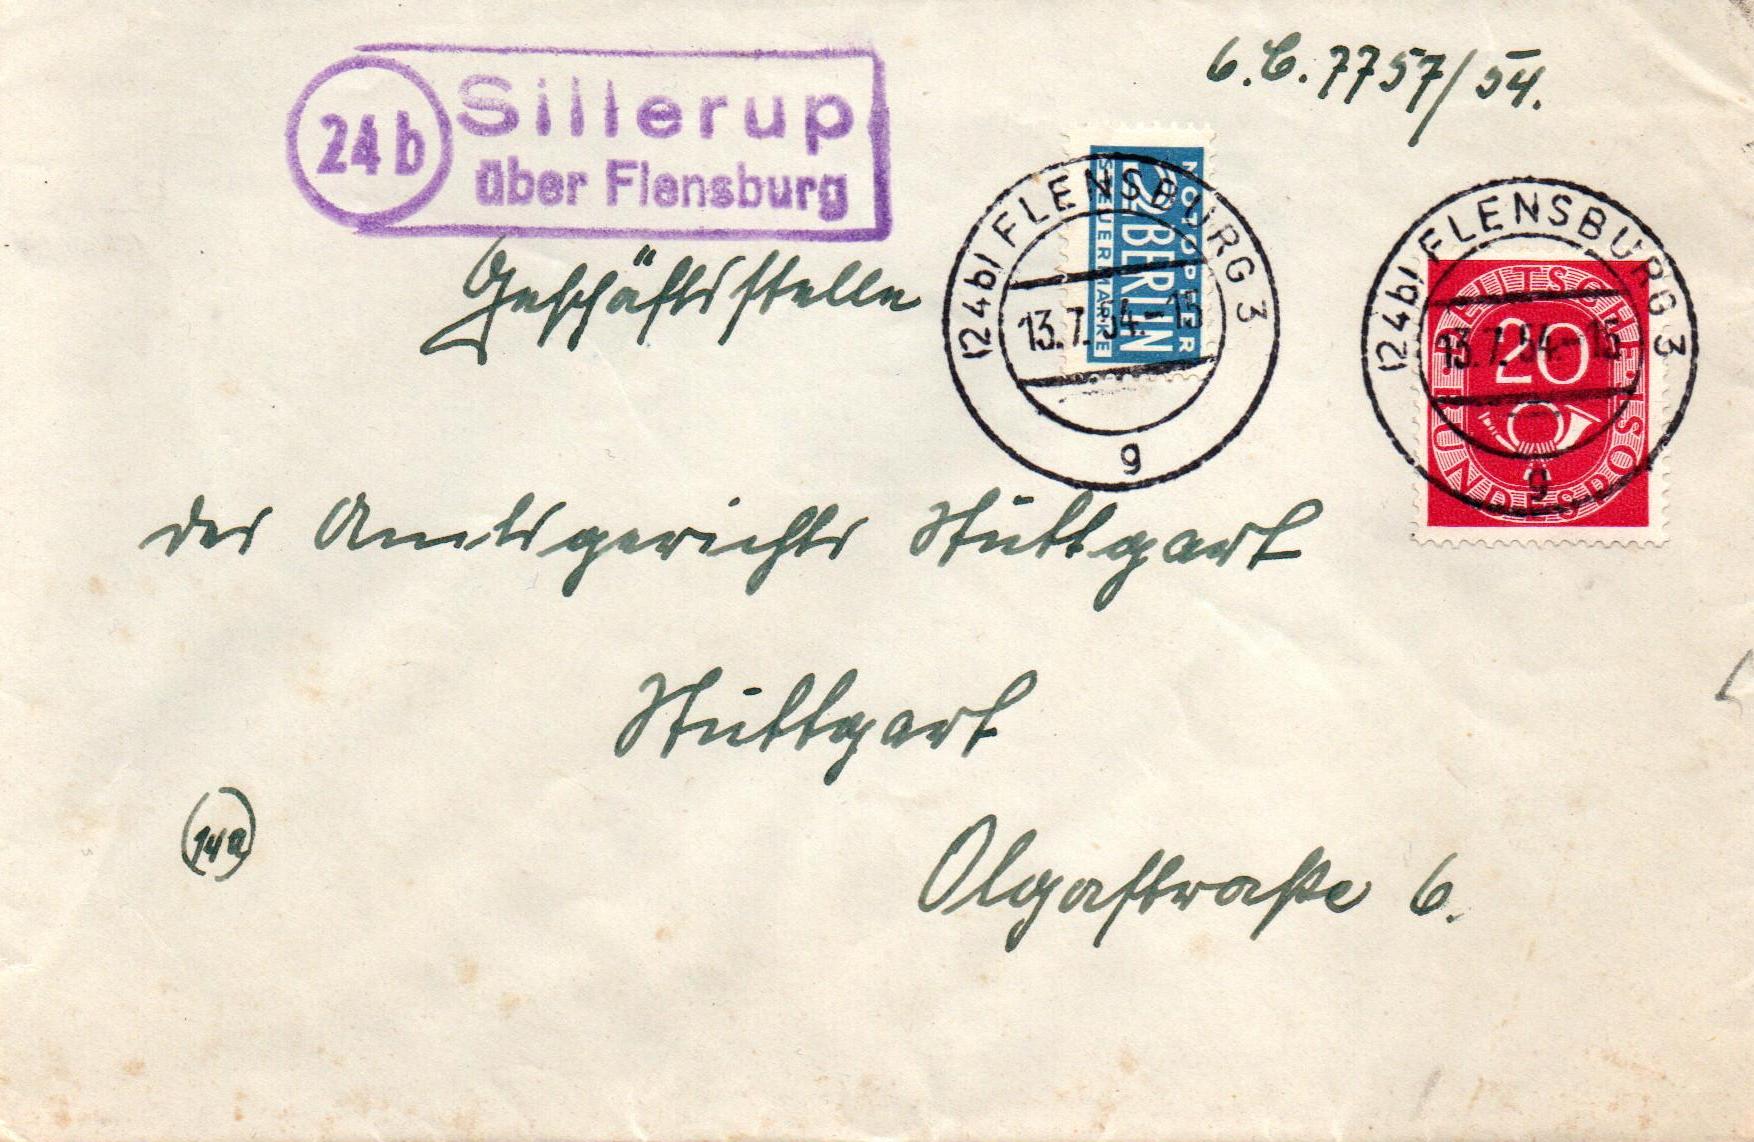 6.C. 7757/54.
24b
Sillerup
über Flensburg
NOTOPFER
2 BERLIN
STEUERMARKE
(24b) FLENSBURG 3
13.7.54.-15
g
(24b) FLENSBURG 3
13.7.54.-15
g
DEUTSCHE BUNDESPOST
20
Geschäftsstelle
des Amtsgerichts Stuttgart
Stuttgart
14a
Olgastraße 6.